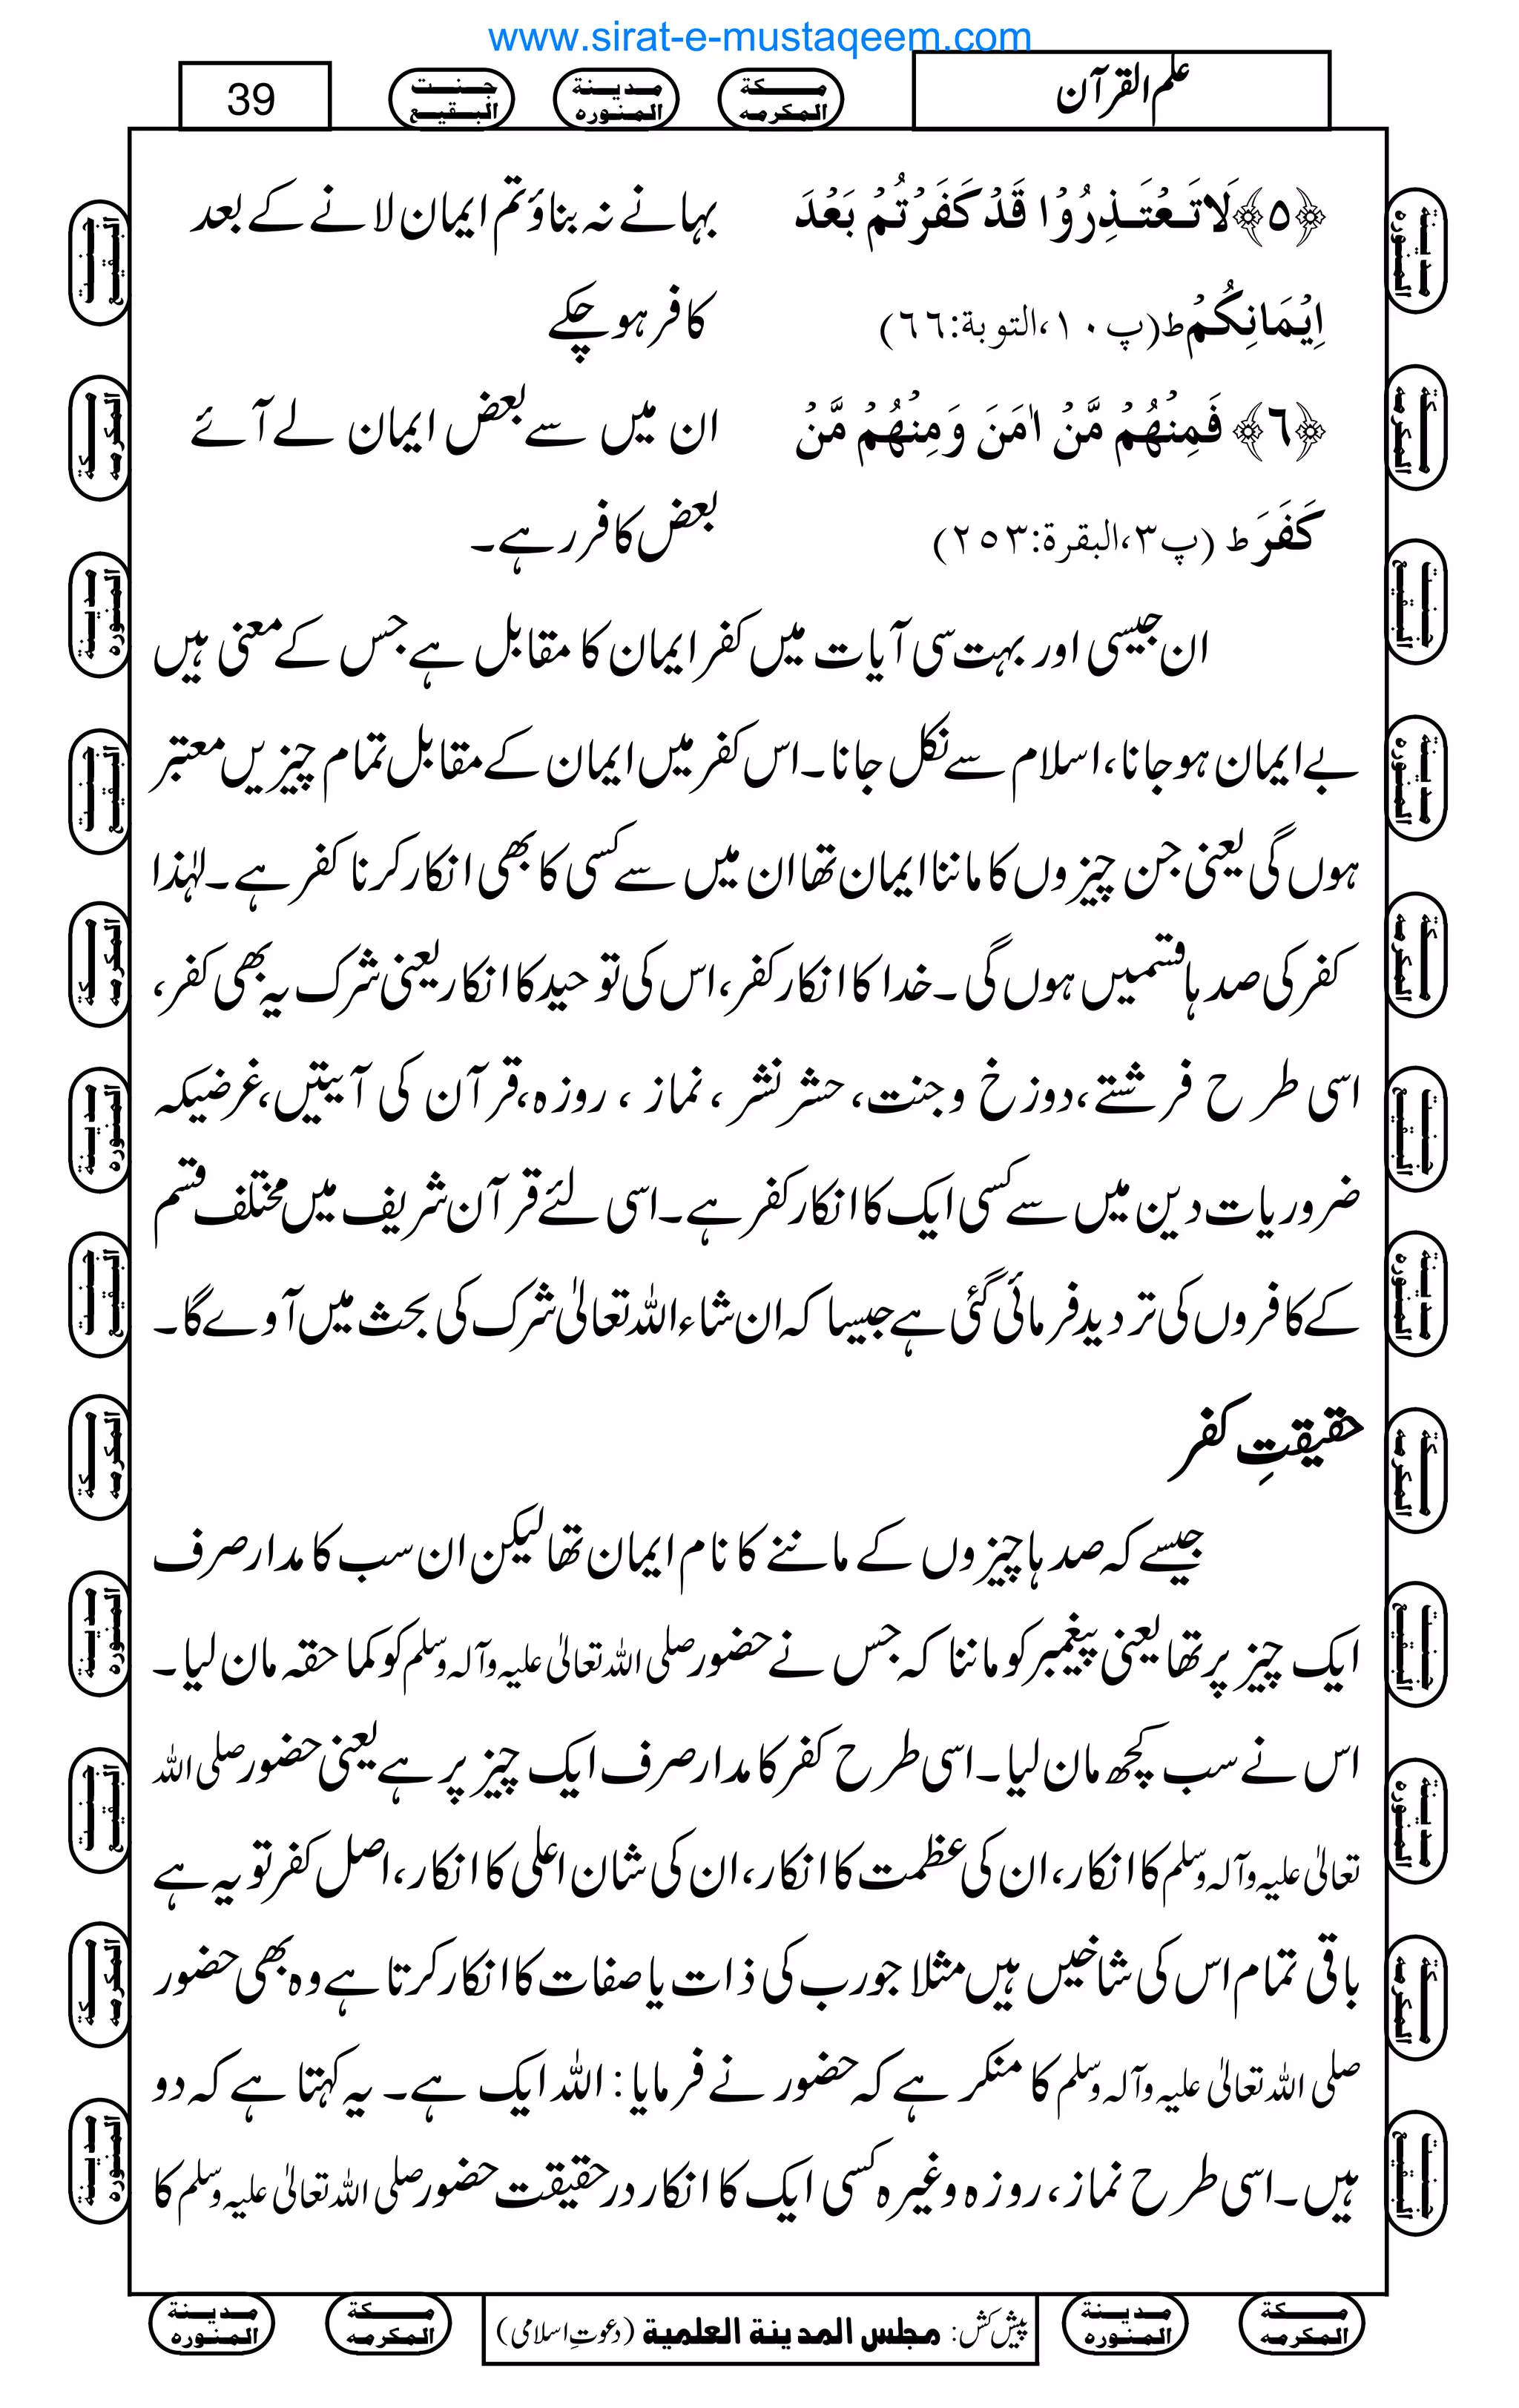 www.sirat-e-mustaqeem.com
علم القرآن
مكة المكرمه
مدينة المنوره
جنت البقيع
39
﴿٥﴾ لَا تَعْتَذِرُوْا قَدْ كَفَرْتُمْ بَعْدَ
اِيْمَانِكُمْ ط (پ١٠،التوبة:٦٦)
بہانے نہ بناؤ تم ایمان لانے کے بعد
کافر ہوچکے
﴿٦﴾ فَمِنْهُمْ مَّنْ اٰمَنَ وَمِنْهُمْ مَّنْ
كَفَرَ ط (پ٣،البقرة:٢٥٣)
ان میں سے بعض ایمان لے آئے
بعض کافر رہے۔
ان جیسی اور بہت سی آیات میں کفر ایمان کا مقابل ہے جس کے معنی ہیں
بے ایمان ہوجانا، اسلام سے نکل جانا۔ اس کفر میں ایمان کے مقابل تمام چیزیں معتبر
ہوں گی یعنی جن چیزوں کا ماننا ایمان تھا ان میں سے کسی کا بھی انکار کرنا کفر ہے۔ لہٰذا
کفر کی صدہا قسمیں ہوں گی۔ خدا کا انکار کفر، اس کی توحید کا انکار یعنی شرک یہ بھی کفر،
اسی طرح فرشتے، دوزخ و جنت، حشر نشر، نماز، روزہ، قرآن کی آیتیں، غرضیکہ
ضروریات دین میں سے کسی ایک کا انکار کفر ہے۔ اسی لئے قرآن شریف میں مختلف قسم
کے کافروں کی تردید فرمائی گئی ہے جیسا کہ ان شاء اللہ تعالٰی شرک کی بحث میں آوے گا۔
حقیقتِ کفر
جیسے کہ صدہا چیزوں کے ماننے کا نام ایمان تھا لیکن ان سب کا مدار صرف
ایک چیز پر تھا یعنی پیغمبر کو ماننا کہ جس نے حضور صلی اللہ تعالٰی علیہ وآلہ وسلم کو کما حقہ مان لیا۔
اس نے سب کچھ مان لیا۔ اسی طرح کفر کا مدار صرف ایک چیز پر ہے یعنی حضور صلی اللہ
تعالٰی علیہ وآلہ وسلم کا انکار، ان کی عظمت کا انکار، ان کی شان اعلی کا انکار، اصل کفر تو یہ ہے
باقی تمام اس کی شاخیں ہیں مثلا جو رب کی ذات یا صفات کا انکار کرتا ہے وہ بھی حضور
صلی اللہ تعالٰی علیہ وآلہ وسلم کا منکر ہے کہ حضور نے فرمایا: اللہ ایک ہے۔ یہ کہتا ہے کہ دو
ہیں۔ اسی طرح نماز، روزہ وغیرہ کسی ایک کا انکار در حقیقت حضور صلی اللہ تعالٰی علیہ وسلم کا
مكة المكرمه
مدينة المنوره
پیش کش: مجلس المدينة العلمية (دعوتِ اسلامی)
مكة المكرمه
مدينة المنوره